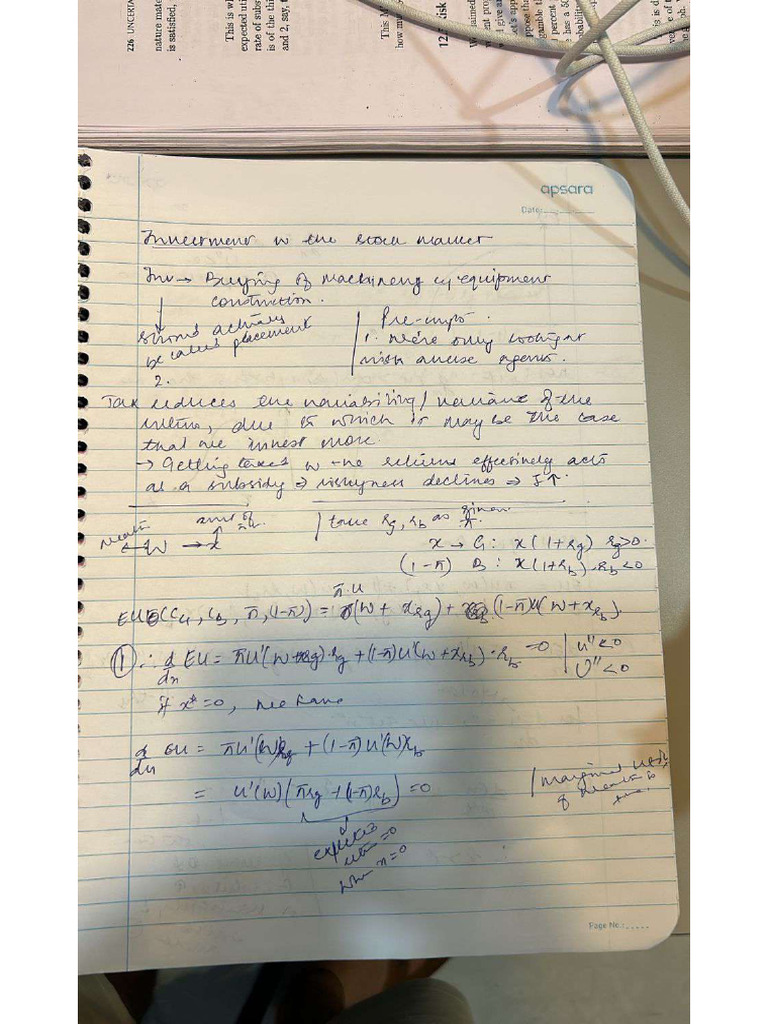 226 UNCERTA
nature mate
is satisfied,
This is w
expected uti
rate of subs
is of the thi
and 2, say, t
This M
how mu
12.
isk
apsara
Date:
Investment in the stock market
Inv → Buying of machinery eq equipment
construction.
be called placement
Pre-
1. We're only looking at
risk averse agents.
2.
Tax reduces the variability/variance of the
return, due to which it may be the case
that we invest more.
→ Getting taxed in -ve returns effectively acts
as a subsidy ⇒ riskyness declines ⇒ I↑.
wealth
← W → x
take rg, rb as given
π
x → G: x(1+rg) rg>0
(1-π) B: x(1+rb) rb<0
π.u
(CG, CB, π, (1-π)) = (W + xrg) + (1-π)u(W + xrb).
① ∴ d/dx EU = πu'(W+xrg).rg + (1-π)u'(W+xrb).rb =0 | u''<0
U''<0
If x*=0, we have
EU = πu'(W)rg + (1-π)u'(W)rb
= u'(W)(πrg + (1-π)rb) =0
Marginal utility
of wealth is
+ve.
expected
return =0
when x=0
Page No.: